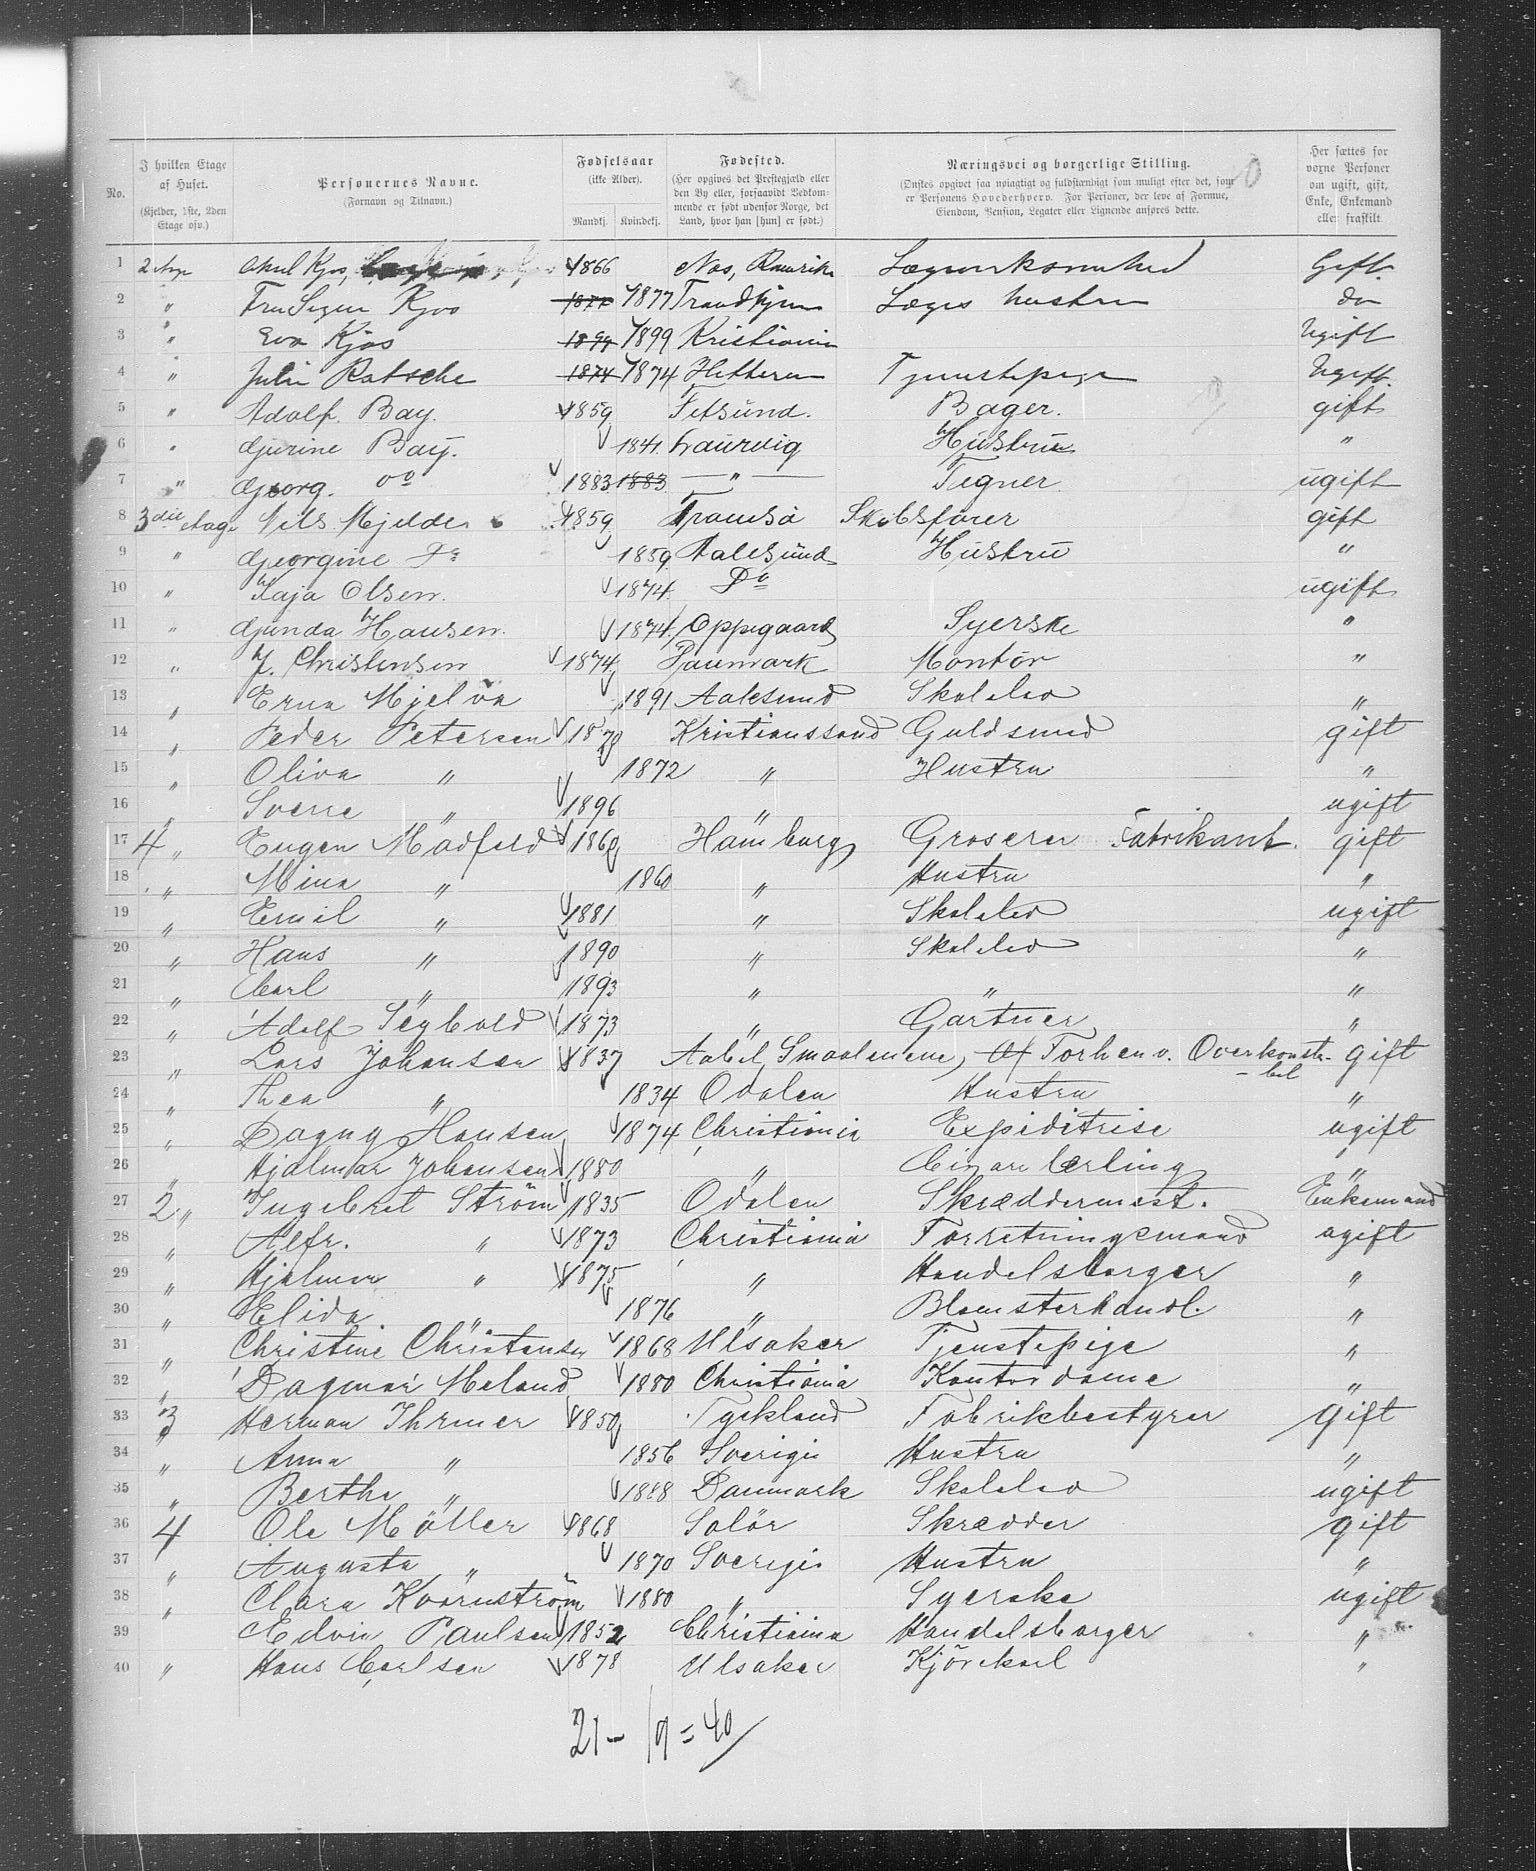 No. I hvilken Etage af Huset. (Kjelder, 1ste, 2den Etage osv.) Personernes Navne. (Fornavn og Tilnavn.) Fødselsaar (ikke Alder). Mandkj. Kvindekj. Fødested. (Her opgives det Prestegjæld eller den By eller, forsaavidt Vedkommende er født udenfor Norge, det Land, hvor han [hun] er født.) Næringsvei og borgerlige Stilling. (Ønskes opgivet saa nøiagtigt og fuldstændigt som muligt efter det, som er Personens Hovederhverv. For Personer, der leve af Formue, Eiendom, Pension, Legater eller Lignende anføres dette. Her sættes for voxne Personer om ugift, gift, Enke, Enkemand eller fraskilt
1 2 Kjos, 1866 Nes, Lægevirksomhed Gift.
2 " Fru Kjos 1877 1877 Trondhjem Læges hustru do
3 " Eva Kjos 1899 1899 Kristiania Ugift
4 " Julie Ratsche 1874 1874 Hitteren Tjenestepige Ugift.
5 " Adolf. Bay. 1859 Fetsund. Bager. gift
6 " Gjurine Bay. 1841. Laurvig Hustru "
7 " Georg. do 1883 1883 — " — Tegner. ugift
8 3die etage Nils Mjelde 1859 Tromsø Skibsfører gift
9 " Georgine Do 1859. Aalesund Hustru "
10 " Kaja Olsen. 1874. Do ugift
11 " Gunda Hansen. 1874. Oppegaard Syerske "
12 " J. Christensen 1874 Danmark Montör "
13 " Erna Mjelva 1891 Aalesund Skoleelev "
14 " Peder Petersen 1870 Kristianssand Guldsmed gift
15 " Oliva " 1872 " Hustru "
16 " Sverre " 1896 " ugift
17 4 " Eugen Madfeld 1860 Hamburg Groserer Fabrikant. gift
18 " Mina " 1860 " Hustru "
19 " Emil " 1881 " Skoleelev ugift
20 " Hans " 1890 " Skoleelev "
21 " Carl " 1893 " " "
22 " Adolf Segbold 1873 " Gartner "
23 " Lars Johansen 1837 Smaalenene, Af Forhenv. Overkonsta- gift
-bel
24 " Thea " 1834 Odalen Hustru "
25 " Dagny Hansen 1874 Christiania Expeditrise ugift
26 " Hjalmar Johansen 1880 " Cigarlærling "
27 2 " Ingebret Ström 1835 Odalen Skræddermest. Enkemand
28 " Alfr. " 1873 Christiania Forretningsmand ugift
29 " Hjalmar " 1875 " Handelsborger "
30 " Elida " 1876 " Blomsterhandl. "
31 " Christine Christensen 1868 Ulsaker Tjenstepige "
32 " Dagmar Meland 1880 Christiania Kontordame "
33 3 Herman Ihrmer 1850 Tyskland Fabrikbestyrer gift
34 " Anna " 1856 Sverige Hustru "
35 " Berthe " 1888 Danmark Skoleelev ugift
36 4 Ole Möller 1868 Solör Skrædder gift
37 " Augusta " 1870 Sverige Hustru "
38 " Clara Kvarnström 1880 " Syerske ugift
39 Edvin Paulsen 1852 Christiania Handelsborger "
40 " Hans Carlsen 1878 Ulsaker Kjörekarl "
21 - 19 = 40